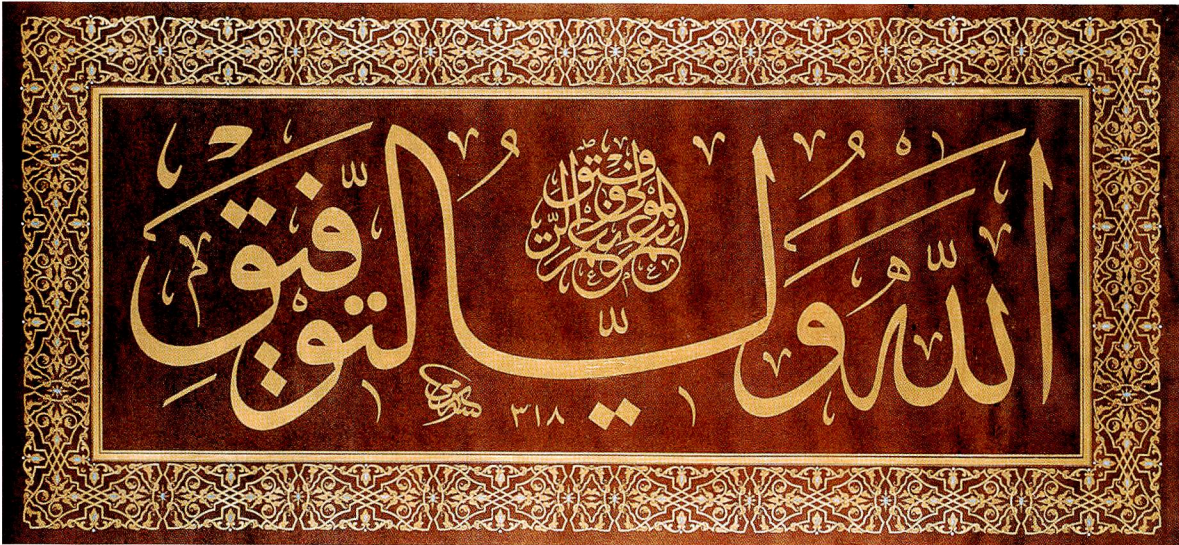 الله ولي التوفيق
نعم المولى ونعم الرفيق
سامي
٣١٨